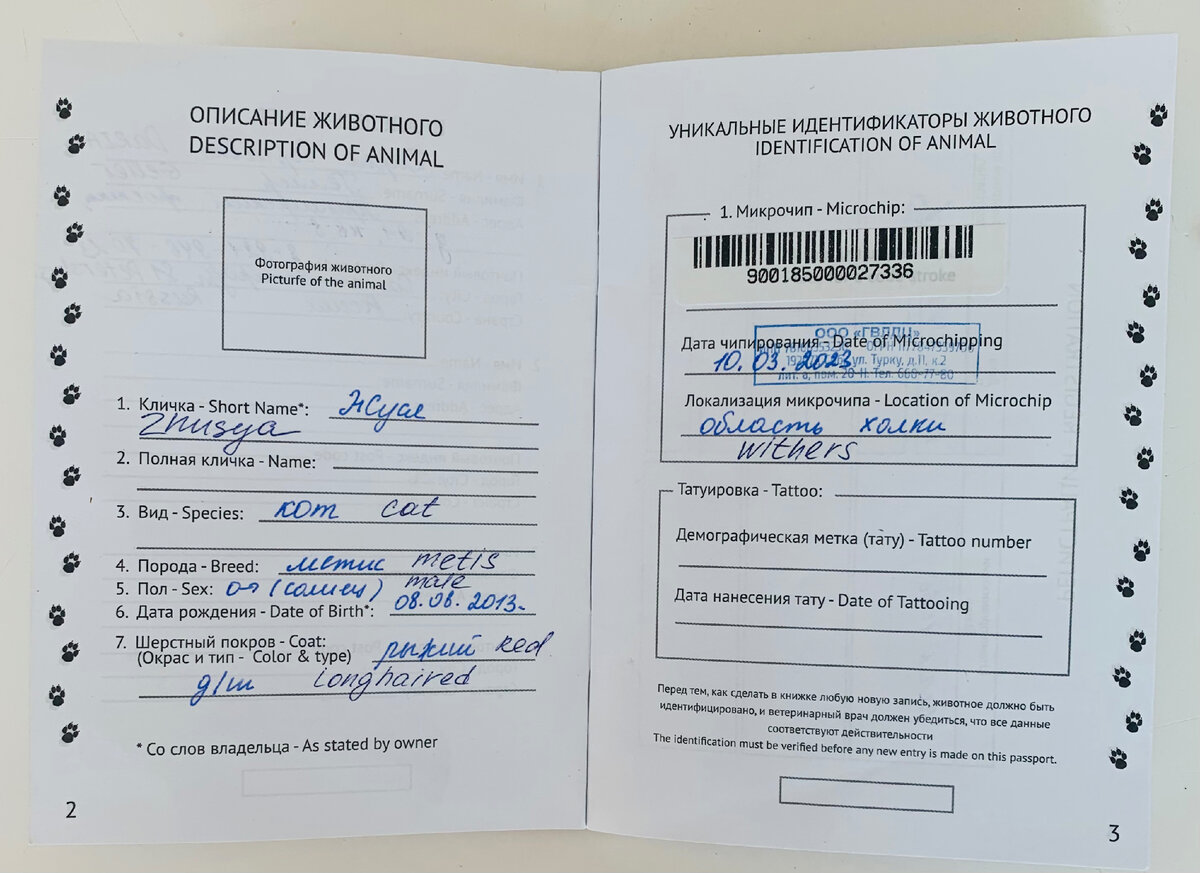 ОПИСАНИЕ ЖИВОТНОГО
DESCRIPTION OF ANIMAL
Фотография животного
Picturfe of the animal
1. Кличка - Short Name*: Жуся
Zhusya
2. Полная кличка - Name:
3. Вид - Species: кот cat
4. Порода - Breed: метис metis
5. Пол - Sex: (самец) male
6. Дата рождения - Date of Birth*: 08.08.2013
7. Шерстный покров - Coat:
(Окрас и тип - Color & type) рыжий Red
д/ш longhaired
* Со слов владельца - As stated by owner
2
УНИКАЛЬНЫЕ ИДЕНТИФИКАТОРЫ ЖИВОТНОГО
IDENTIFICATION OF ANIMAL
1. Микрочип - Microchip:
900185000027336
stroke
ООО «ГВЛДЦ»
Дата чипирования - Date of Microchipping
10.03.2023
ул. Турку, д.11, к.2
лит. а, пом. 20-Н. Тел. 660-77-80
Локализация микрочипа - Location of Microchip
область холки
withers
Татуировка - Tattoo:
Демографическая метка (тату) - Tattoo number
Дата нанесения тату - Date of Tattooing
Перед тем, как сделать в книжке любую новую запись, животное должно быть
идентифицировано, и ветеринарный врач должен убедиться, что все данные
соответствуют действительности
The identification must be verified before any new entry is made on this passport.
3